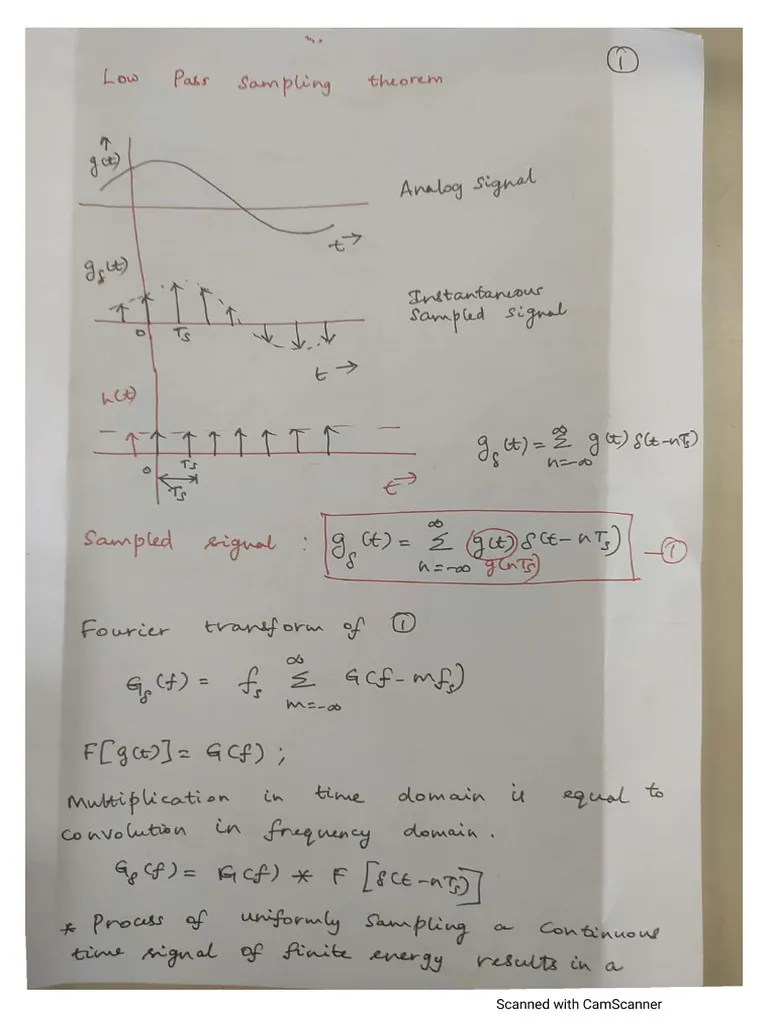 ①
Low Pass Sampling theorem
g(t)
Analog Signal
t →
g_δ(t)
Instantaneous
Sampled signal
0 T_s
t →
h(t)
g_δ(t) = ∞ Σ n=-∞ g(t) δ(t-nT_s)
0 T_s
T_s
t →
Sampled signal : g_δ(t) = ∞ Σ n=-∞ g(t) δ(t-nT_s) — ①
g(nT_s)
Fourier transform of ①
G_δ(f) = f_s ∞ Σ m=-∞ G(f-mf_s)
F[g(t)] = G(f) ;
Multiplication in time domain is equal to
convolution in frequency domain.
G_δ(f) = G(f) * F [δ(t-nT_s)]
* Process of uniformly sampling a continuous
time signal of finite energy results in a
Scanned with CamScanner